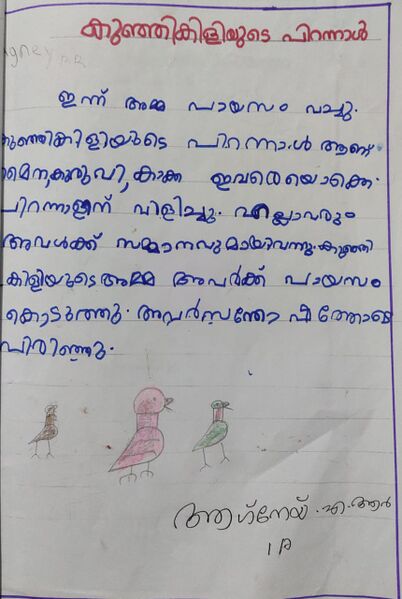 കുഞ്ഞികിളിയുടെ പിറന്നാൾ
ഇന്ന് അമ്മ പായസം വച്ചു.
കുഞ്ഞിക്കിളിയുടെ പിറന്നാൾ ആണ്.
മൈന, കുരുവി, കാക്ക ഇവരെയൊക്കെ.
പിറന്നാളിന് വിളിച്ചു. എല്ലാവരും
അവൾക്ക് സമ്മാനവുമായിവന്നു. കുഞ്ഞി
കിളിയുടെ അമ്മ അവർക്ക് പായസം
കൊടുത്തു. അവർസന്തോഷത്തോടെ
പിരിഞ്ഞു.
ആഗ്നേയ്. എ. ആർ
1 A